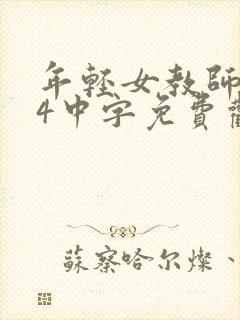 年轻女教師
4中字免費觀
蘇察哈尔燦、